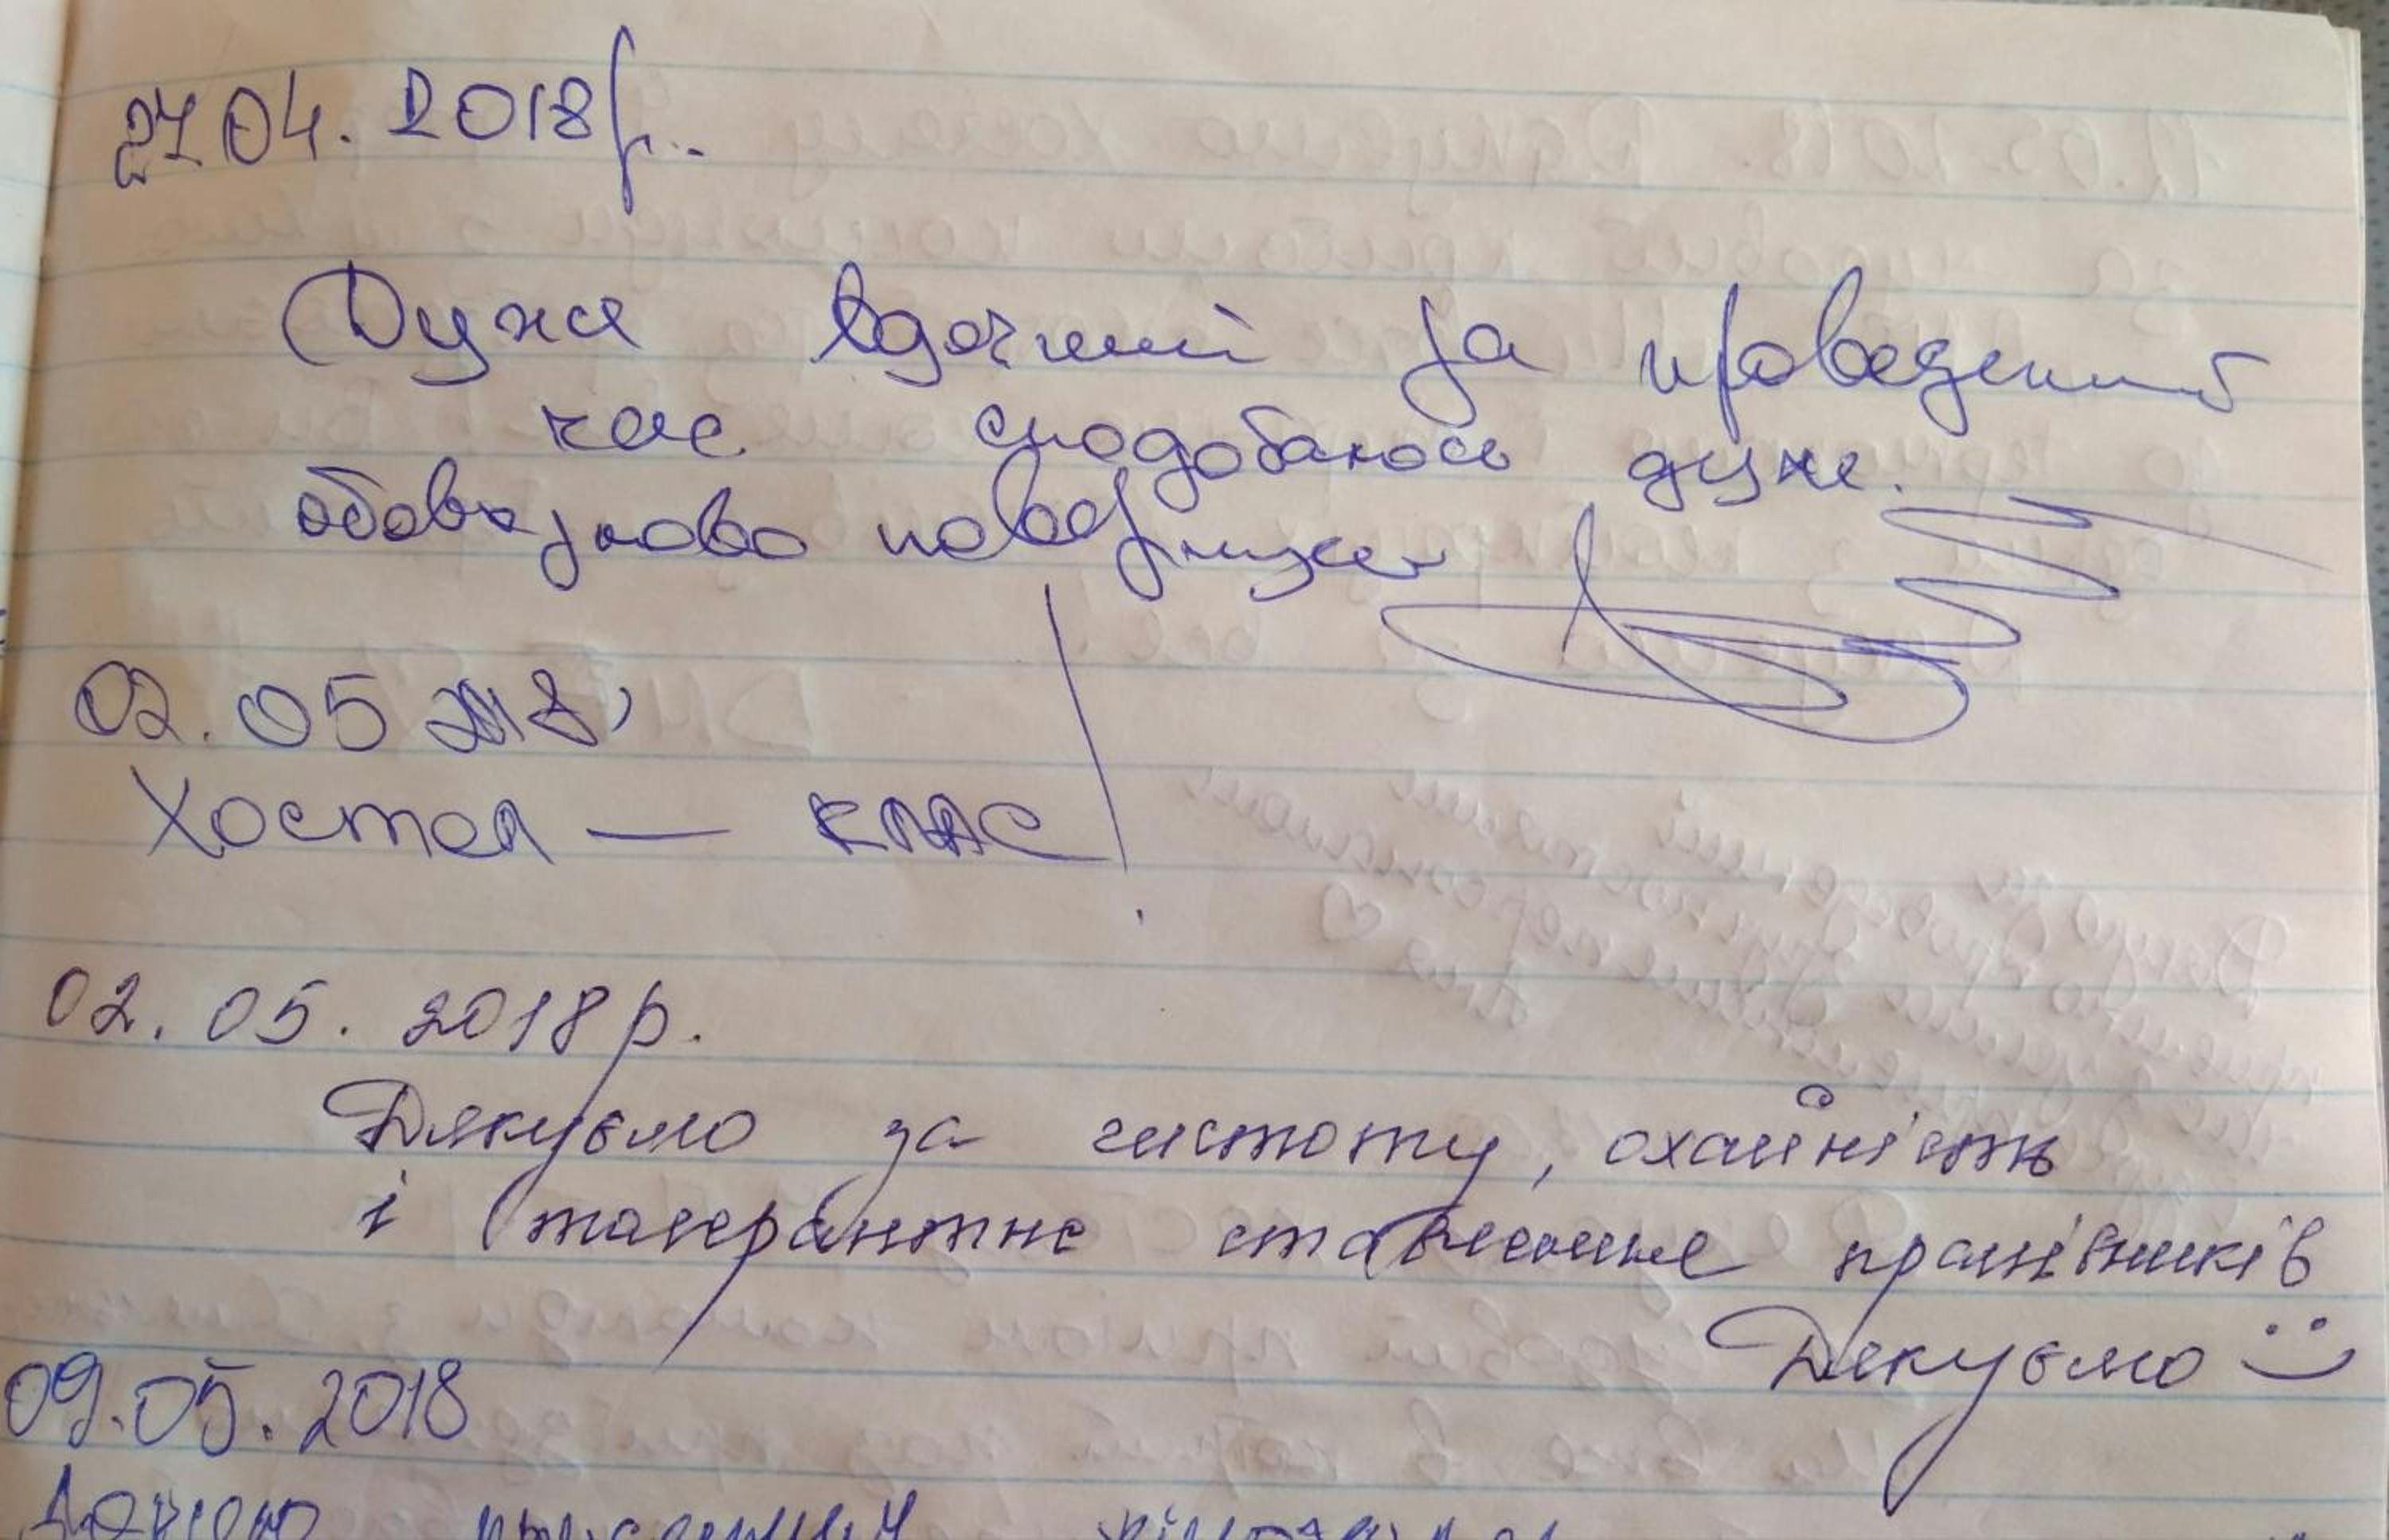 27.04.2018р..
Дуже вдячний за проведений
час сподобалось дуже.
обовязково повернуся
02.05 2018,
Хостел — КЛАС!
02.05.2018р.
Дякуємо за чистоту, охайність
і толерантне ставлення працівників
Дякуємо
09.05.2018